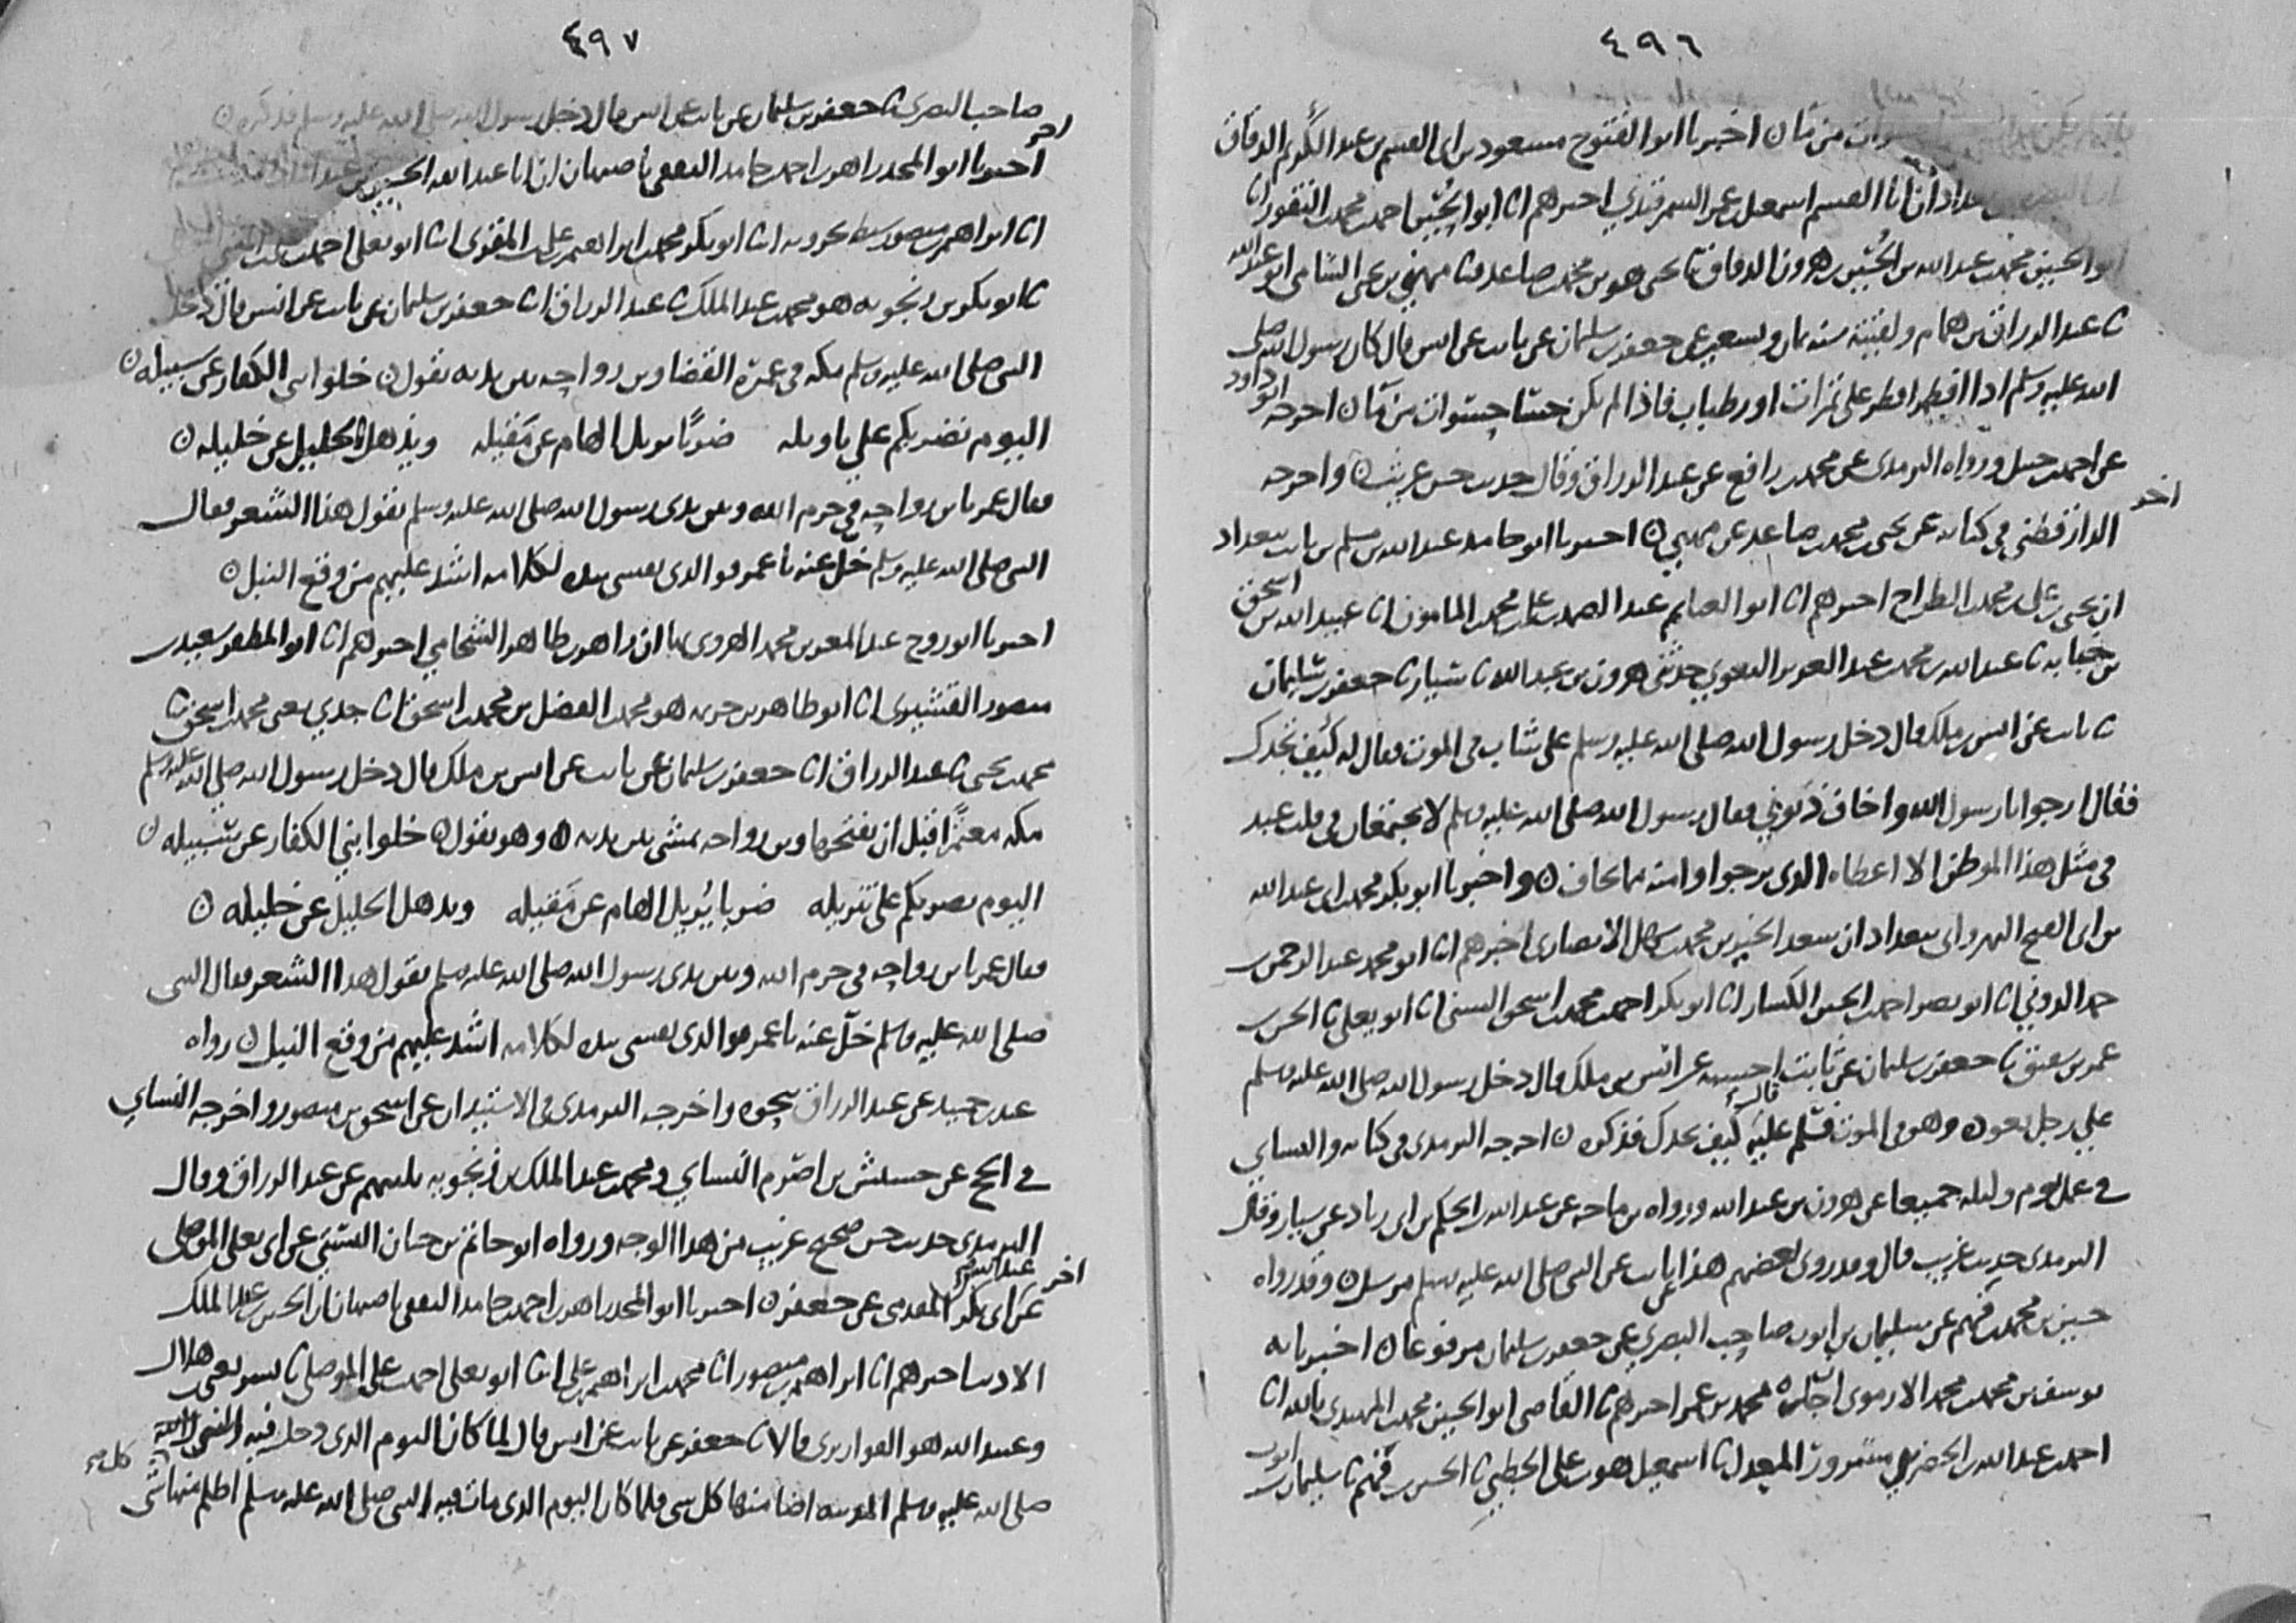 ٤٩٦
من ماء ن اخبرنا ابو الفتوح مسعود بن ابي القسم بن عبد الكريم الدقاق
ان ابا القسم اسمعيل بن عمر السمرقندي اخبرهم انا ابو الحسين احمد بن محمد بن النقور انا
ابو الحسين محمد بن عبد الله بن الحسين بن هرون الدقاق نا يحيى هو بن محمد بن صاعد نا مهنى بن يحيى الشامي ابو عبد الله
نا عبد الرزاق بن همام ولقيته سنة ثمان وتسعين عن جعفر بن سليمان عن ثابت عن انس قال كان رسول الله صلى
الله عليه وسلم اذا افطر افطر على تمرات او رطبات فاذا لم يكن حسا حسوات من ماء ن اخرجه ابو داود
عن احمد بن حنبل ورواه الترمذي عن محمد بن رافع عن عبد الرزاق وقال حديث حسن غريب ن واخرجه
الدارقطني في كتابه عن يحيى بن محمد بن صاعد عن مهنى ن اخبرنا ابو حامد عبد الله بن مسلم بن ثابت ببغداد
اخر
ان يحيى بن علي بن محمد الطراح اخبرهم انا ابو الغنائم عبد الصمد بن علي بن محمد بن المامون انا عبيد الله بن اسحق
بن حبابه نا عبد الله بن محمد بن عبد العزيز البغوي حدثني هرون بن عبد الله نا سيار نا جعفر بن سليمان
نا ثابت عن انس بن ملك قال دخل رسول الله صلى الله عليه وسلم على شاب في الموت فقال له كيف تجدك
فقال ارجو يا رسول الله واخاف ذنوبي فقال رسول الله صلى الله عليه وسلم لا يجتمعان في قلب عبد
في مثل هذا الموطن الا اعطاه الذي يرجوا وامنه مما يخاف ن واخبرنا ابو بكر محمد بن ابي عبد الله
بن ابي الفتح النهرواني ببغداد ان سعد الخير بن محمد بن سهل الانصاري اخبرهم انا ابو محمد عبد الرحمن بن
حمد الدوني انا ابو نصر احمد بن الحسين الكسار انا ابو بكر احمد بن محمد بن اسحق السني انا ابو يعلى نا الحسن بن
عمر بن شقيق نا جعفر بن سليمان عن ثابت احسبه عن انس بن ملك قال دخل رسول الله صلى الله عليه وسلم
على رجل يعوده وهو في الموت فسلم عليه قال كيف تجدك فذكره ن اخرجه الترمذي في كتابه والنساي
في عمل يوم وليله جميعا عن هرون بن عبد الله ورواه بن ماجه عن عبد الله بن الحكم بن ابي زياد عن سيار وقال
الترمذي حديث غريب قال وقد روى بعضهم هذا عن ثابت عن النبي صلى الله عليه وسلم مرسل ن وقد رواه
حسين بن محمد بن فهم عن سليمان بن ايوب صاحب البصري عن جعفر بن سليمان مرفوعا ن اخبرنا به
يوسف بن محمد بن محمد الارموي ان جده محمد بن عمر اخبرهم نا القاضي ابو الحسين محمد بن المهتدي بالله انا
احمد بن عبد الله بن الخضر بن مسرور المعدل نا اسمعيل هو بن علي الخطبي نا الحسين بن فهم نا سليمان بن ايوب
٤٩٧
صاحب البصري نا جعفر بن سليمان عن ثابت عن انس قال دخل رسول الله صلى الله عليه وسلم فذكره ن
اخر
اخبرنا ابو المجد زاهر بن احمد بن حامد الثقفي باصبهان ان ابا عبد الله الحسين بن عبد
انا ابراهيم بن منصور سبط بحرويه انا ابو بكر محمد بن ابراهيم بن علي بن المقرئ انا ابو يعلى احمد بن علي بن المثنى
نا ابو بكر بن زنجويه هو محمد بن عبد الملك نا عبد الرزاق انا جعفر بن سليمان عن ثابت عن انس قال دخل
النبي صلى الله عليه وسلم مكه في عمرة القضا وبن رواحه بين يديه يقول ن خلوا بني الكفار عن سبيله ن
اليوم نضربكم على تاويله ضربا يزيل الهام عن مقيله ويذهل الخليل عن خليله ن
فقال عمر يا بن رواحه في حرم الله وبين يدي رسول الله صلى الله عليه وسلم تقول هذا الشعر فقال
النبي صلى الله عليه وسلم خل عنه يا عمر فو الذي نفسي بيده لكلامه اشد عليهم من وقع النبل ن
اخبرنا ابو روح عبد المعز بن محمد الهروي بها ان زاهر بن طاهر الشحامي اخبرهم انا ابو المظفر سعيد بن
منصور القشيري انا ابو طاهر بن خزيمه هو محمد بن الفضل بن محمد بن اسحق انا جدي يعني محمد بن اسحق نا
محمد بن يحيى نا عبد الرزاق انا جعفر بن سليمان عن ثابت عن انس بن ملك قال دخل رسول الله صلى الله عليه وسلم
مكه معتمرا قبل ان يفتحها وبن رواحه يمشي بين يديه وهو يقول ن خلوا بني الكفار عن سبيله ن
اليوم نضربكم على تنزيله ضربا يزيل الهام عن مقيله ويذهل الخليل عن خليله ن
فقال عمر يا بن رواحه في حرم الله وبين يدي رسول الله صلى الله عليه وسلم تقول هذا الشعر فقال النبي
صلى الله عليه وسلم خل عنه يا عمر فو الذي نفسي بيده لكلامه اشد عليهم من وقع النبل ن رواه
عبد بن حميد عن عبد الرزاق بنحوه واخرجه الترمذي في الاستيذان عن اسحق بن منصور واخرجه النساي
في الحج عن خشيش بن اصرم النساي ومحمد بن عبد الملك بن زنجويه ثلثتهم عن عبد الرزاق وقال
الترمذي حديث حسن صحيح غريب من هذا الوجه ورواه ابو حاتم بن حبان البستي عن ابي يعلى الموصلي
عن عبد الله بن ابي بكر المقدمي عن جعفر ن اخبرنا ابو المجد زاهر بن احمد بن حامد الثقفي باصبهان ان الحسين بن عبد الملك
اخر
الاديب اخبرهم انا ابراهيم بن منصور انا محمد بن ابراهيم بن علي انا ابو يعلى احمد بن علي الموصلي نا بشر يعني بن هلال
وعبيد الله هو القواريري قالا نا جعفر عن ثابت عن انس قال لما كان اليوم الذي دخل فيه النبي
صلى الله عليه وسلم المدينه اضا منها كل شي فلما كان اليوم الذي مات فيه النبي صلى الله عليه وسلم اظلم منها شي
كل